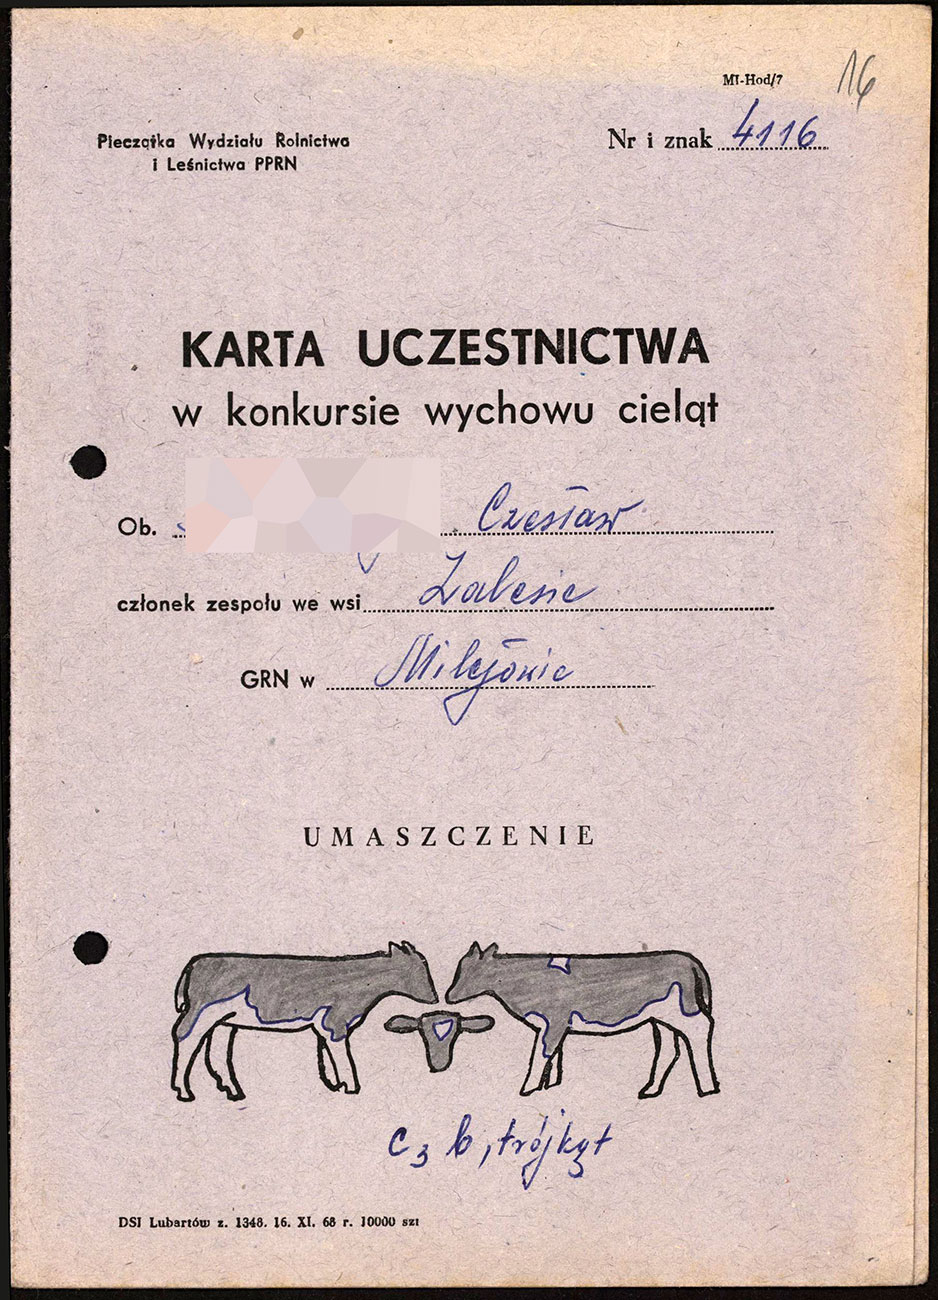 MI-Hod/7
16
Pieczątka Wydziału Rolnictwa
i Leśnictwa PPRN
Nr i znak 4116
KARTA UCZESTNICTWA
w konkursie wychowu cieląt
Ob. Czesław
członek zespołu we wsi Zalesie
GRN w Milejowie
UMASZCZENIE
c z b, trójkąt
DSI Lubartów z. 1348. 16. XI. 68 r. 10000 szt